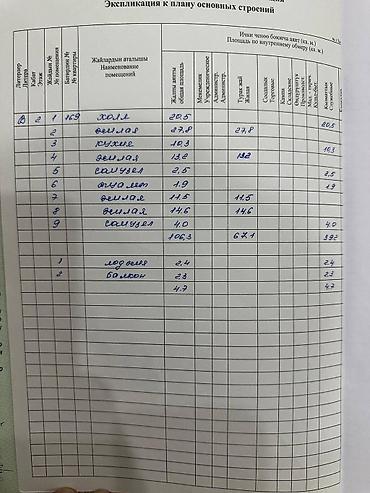 Экспликация к плану основных строений
Ички ченөө боюнча аянт (кв. м.)
Площадь по внутреннему обмеру (кв. м.)
Литерлер Литера
Кабат Этаж
Жайдын № № помещения
Батирдин № № квартиры
Жайлардын аталышы Наименование помещений
Жалпы аянты общая площадь
Мекемелик Учрежденческие
Администр. Администр.
Турак жай Жилая
Соодалык Торговые
Кампа Складские
В 2 1 169 холл 20,5 20,5
2 жилая 27,8 27,8
3 кухня 10,3 10,3
4 жилая 13,2 13,2
5 санузел 2,5 2,5
6 туалет 1,9 1,9
7 жилая 11,5 11,5
8 жилая 14,6 14,6
9 санузел 4,0 4,0
106,3 67,1 39,2
1 лоджия 2,4 2,4
2 балкон 2,3 2,3
4,7 4,7